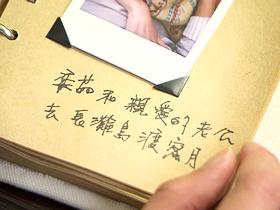 蔡茹和親愛的老公
去長灘島渡蜜月